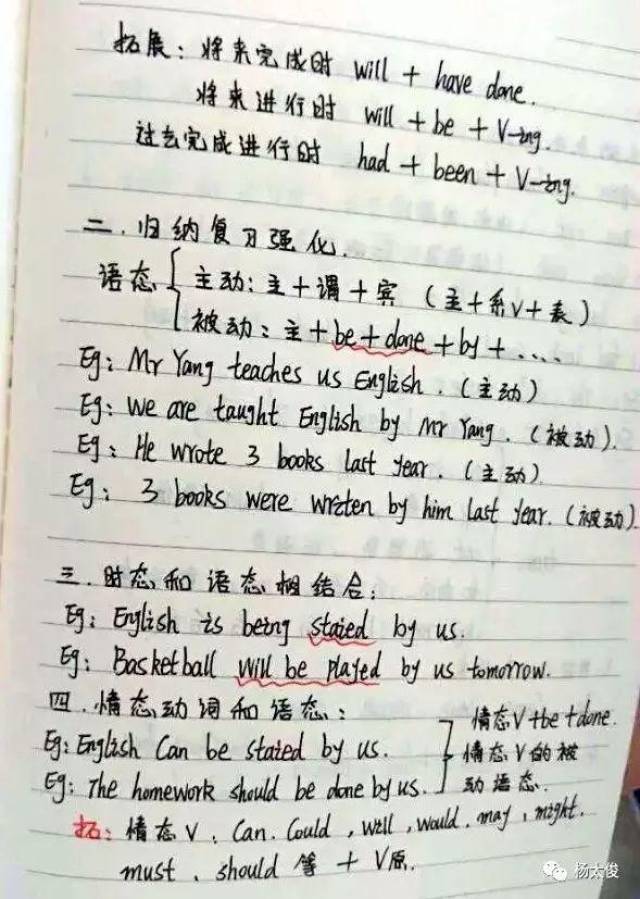 拓展：将来完成时 will + have done.
将来进行时 will + be + V-ing.
过去完成进行时 had + been + V-ing.
二.归纳复习强化.
语态 { 主动：主+谓+宾 (主+系V+表)
被动：主+be+done+by+....
Eg: Mr Yang teaches us English. (主动)
Eg: We are taught English by Mr Yang. (被动).
Eg: He wrote 3 books last year. (主动)
Eg: 3 books were wreten by him last year. (被动).
三.时态和语态相结合：
Eg: English is being stated by us.
Eg: Basketball will be played by us tomorrow.
四.情态动词和语态：
Eg: English Can be stated by us.
Eg: The homework should be done by us.
情态V+be+done.
情态V的被
动语态.
拓：情态V：Can. Could, will, would. may, might.
must、should 等 + V原.
杨太俊